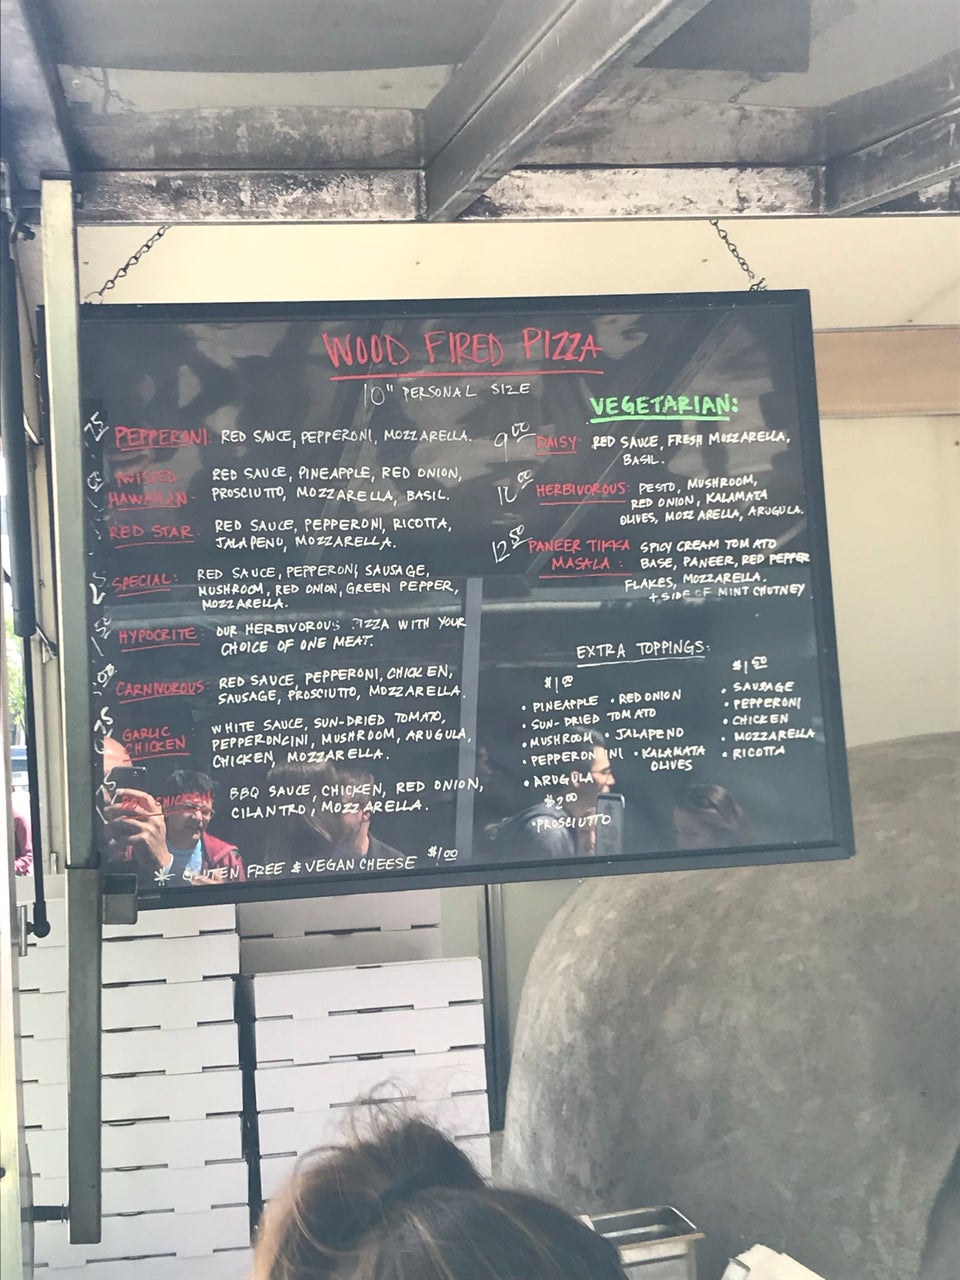 WOOD FIRED PIZZA
10" PERSONAL SIZE
PEPPERONI: RED SAUCE, PEPPERONI, MOZZARELLA.
TWISTED HAWAIIAN: RED SAUCE, PINEAPPLE, RED ONION,
PROSCIUTTO, MOZZARELLA, BASIL.
RED STAR: RED SAUCE, PEPPERONI, RICOTTA,
JALAPENO, MOZZARELLA.
SPECIAL: RED SAUCE, PEPPERONI, SAUSAGE,
MUSHROOM, RED ONION, GREEN PEPPER,
MOZZARELLA.
HYPOCRITE: OUR HERBIVOROUS PIZZA WITH YOUR
CHOICE OF ONE MEAT.
CARNIVOROUS: RED SAUCE, PEPPERONI, CHICKEN,
SAUSAGE, PROSCIUTTO, MOZZARELLA.
GARLIC CHICKEN: WHITE SAUCE, SUN-DRIED TOMATO,
PEPPERONCINI, MUSHROOM, ARUGULA,
CHICKEN, MOZZARELLA.
BBQ CHICKEN BBQ SAUCE, CHICKEN, RED ONION,
CILANTRO, MOZZARELLA.
* GLUTEN FREE & VEGAN CHEESE $1.00
VEGETARIAN:
9.00 DAISY: RED SAUCE, FRESH MOZZARELLA,
BASIL.
HERBIVOROUS: PESTO, MUSHROOM,
RED ONION, KALAMATA
OLIVES, MOZZARELLA, ARUGULA.
12.50 PANEER TIKKA MASALA: SPICY CREAM TOMATO
BASE, PANEER, RED PEPPER
FLAKES, MOZZARELLA.
+ SIDE OF MINT CHUTNEY
EXTRA TOPPINGS:
$1.00
• PINEAPPLE • RED ONION
• SUN-DRIED TOMATO
• MUSHROOM • JALAPENO
• PEPPERONCINI • KALAMATA
OLIVES
• ARUGULA
$2.00
• PROSCIUTTO
$1.50
• SAUSAGE
• PEPPERONI
• CHICKEN
• MOZZARELLA
• RICOTTA